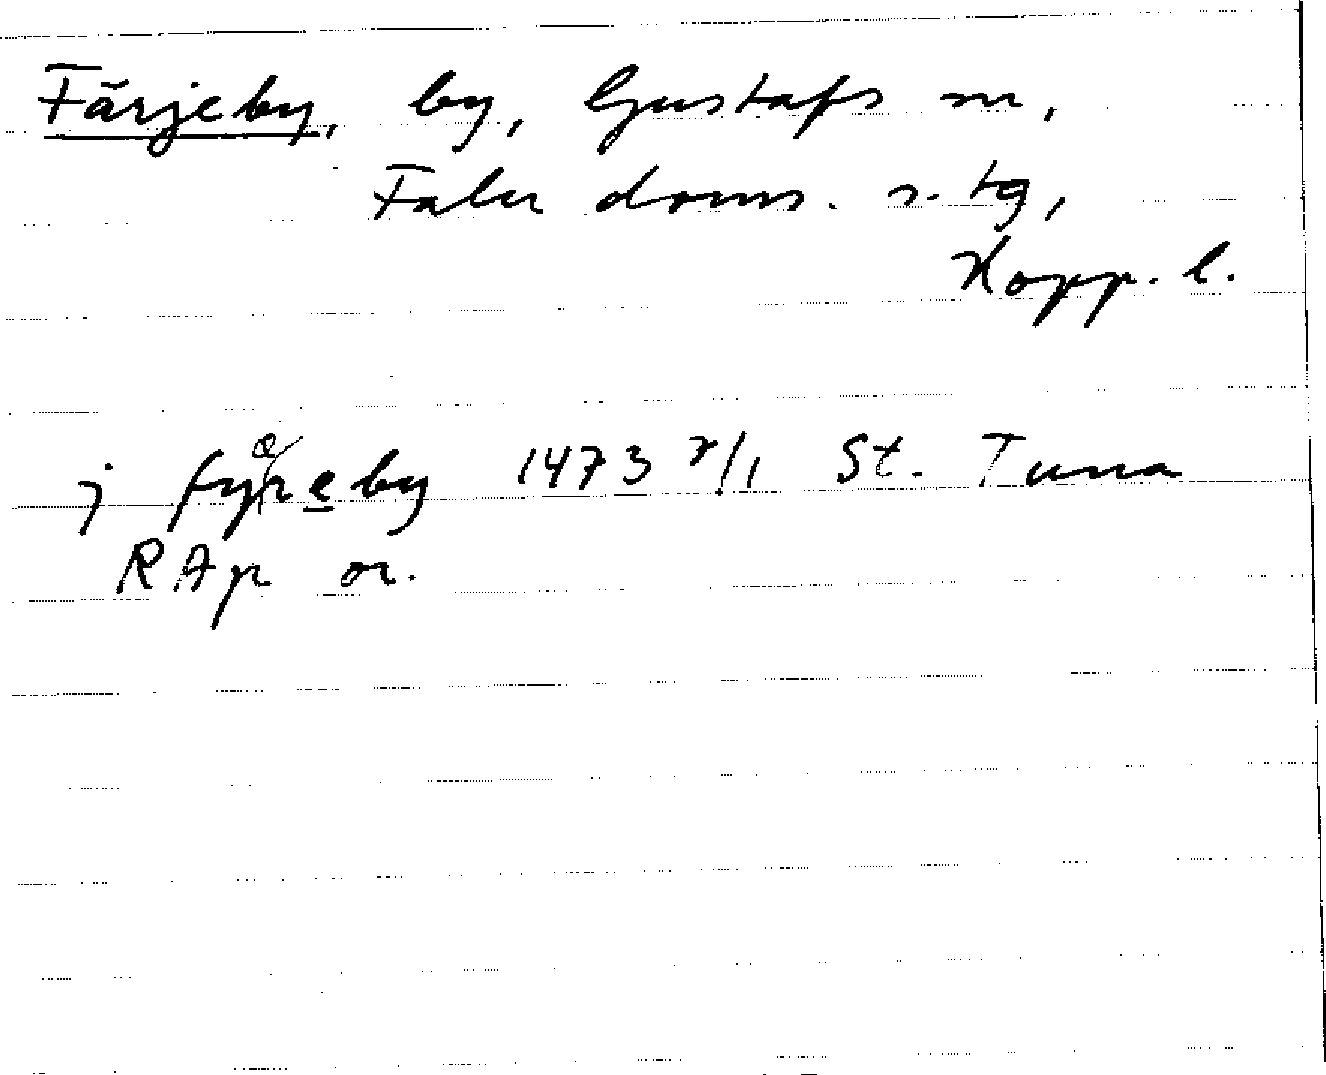 Färjeby, by, Gustafs sn,
Falu doms. s. tg,
Kopp. l.
j fyreby 1473 7/1 St. Tuna
RAp or.